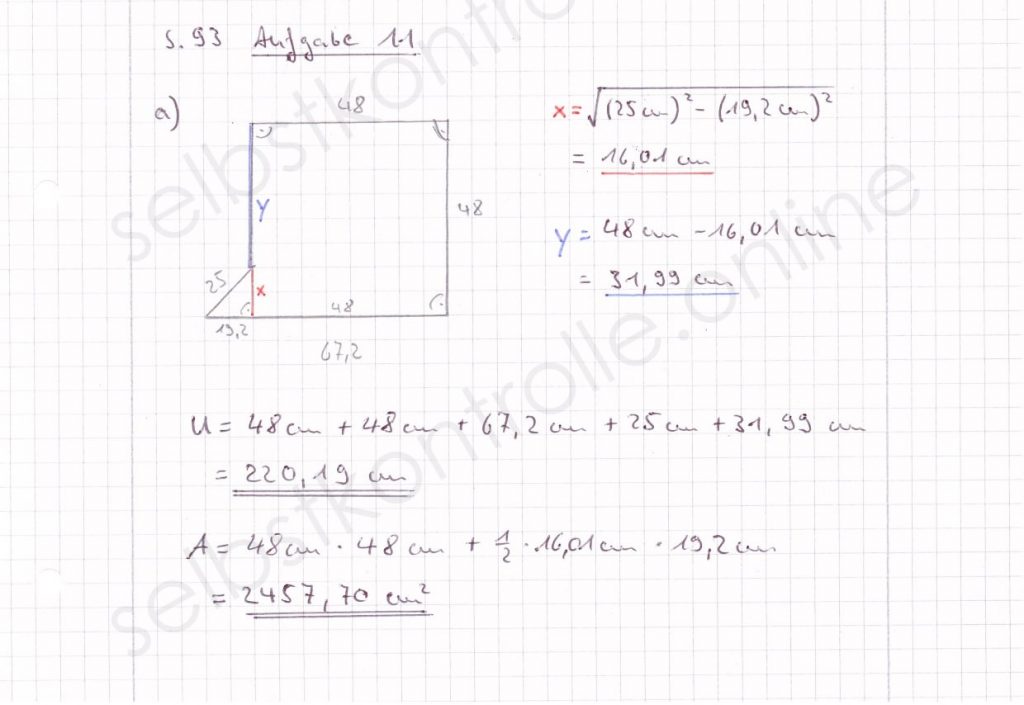 S. 93 Aufgabe 11
a)
48
x = √(25 cm)² - (19,2 cm)²
= 16,01 cm
y
48
y = 48 cm - 16,01 cm
= 31,99 cm
25
x
48
19,2
67,2
U = 48 cm + 48 cm + 67,2 cm + 25 cm + 31,99 cm
= 220,19 cm
A = 48 cm · 48 cm + 1/2 · 16,01 cm · 19,2 cm
= 2457,70 cm²
selbstkontrolle.online
selbstkontrolle.online